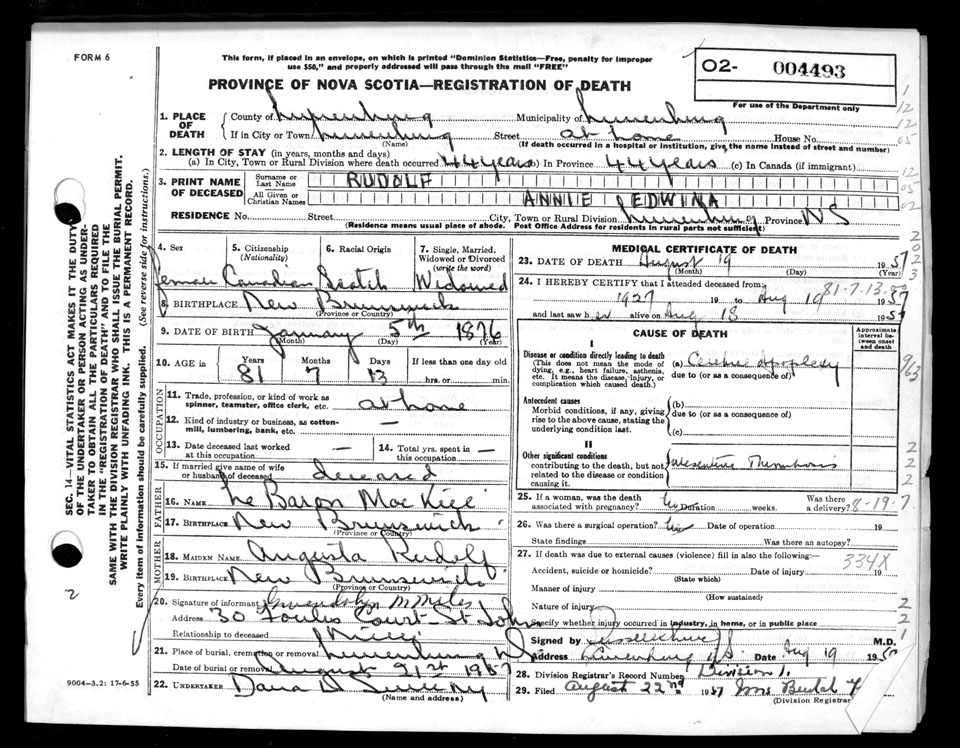 FORM 6
This form, if placed in an envelope, on which is printed "Dominion Statistics—Free, penalty for improper
use $50," and properly addressed will pass through the mail "FREE"
PROVINCE OF NOVA SCOTIA—REGISTRATION OF DEATH
O2- 004493
For use of the Department only
1. PLACE OF DEATH
County of Lunenburg Municipality of Lunenburg
If in City or Town Lunenburg Street at home House No.
(Name) (If death occurred in a hospital or institution, give the name instead of street and number)
2. LENGTH OF STAY (in years, months and days)
(a) In City, Town or Rural Division where death occurred 44 years (b) In Province 44 years (c) In Canada (if immigrant)
3. PRINT NAME OF DECEASED
Surname or Last Name RUDOLF
All Given or Christian Names ANNIE EDWINA
RESIDENCE No. Street City, Town or Rural Division Lunenburg Province NS
(Residence means usual place of abode. Post Office Address for residents in rural parts not sufficient)
4. Sex 5. Citizenship (Nationality) 6. Racial Origin 7. Single, Married, Widowed or Divorced (write the word)
Female Canadian Scotch Widowed
8. BIRTHPLACE New Brunswick
(Province or Country)
9. DATE OF BIRTH January 5th 1876
(Month) (Day) (Year)
10. AGE Years Months Days If less than one day old
81 7 13 hrs. or min.
OCCUPATION
11. Trade, profession, or kind of work as spinner, teamster, office clerk, etc. at home
12. Kind of industry or business, as cotton-mill, lumbering, bank, etc. —
13. Date deceased last worked at this occupation — 14. Total yrs. spent in this occupation —
15. If married give name of wife or husband of deceased deceased
FATHER
16. NAME Le Baron MacKiel
17. BIRTHPLACE New Brunswick
(Province or Country)
MOTHER
18. MAIDEN NAME Augusta Rudolf
19. BIRTHPLACE New Brunswick
(Province or Country)
20. Signature of informant Gwendolyn M Miles
Address 30 Court St John
Relationship to deceased Niece
21. Place of burial, cremation or removal Lunenburg NS
Date of burial or removal August 21st 1957
22. UNDERTAKER Dana
(Name and address)
MEDICAL CERTIFICATE OF DEATH
23. DATE OF DEATH August 19 1957
(Month) (Day) (Year)
24. I HEREBY CERTIFY that I attended deceased from 81-7-13
1927 19 to Aug 19 1957
and last saw her alive on Aug 18 1957
CAUSE OF DEATH
Approximate interval between onset and death
I
Disease or condition directly leading to death (a) Cerebral Apoplexy
(This does not mean the mode of dying, e.g., heart failure, asthenia, etc. It means the disease, injury, or complication which caused death.) due to (or as a consequence of)
963
Antecedent causes (b)
Morbid conditions, if any, giving rise to the above cause, stating the underlying condition last. due to (or as a consequence of)
(c)
II
Other significant conditions
contributing to the death, but not related to the disease or condition causing it. Thrombosis
25. If a woman, was the death associated with pregnancy? No Duration weeks. Was there a delivery? 8-19-7
26. Was there a surgical operation? No Date of operation 19
State findings Was there an autopsy?
27. If death was due to external causes (violence) fill in also the following:—
334X
Accident, suicide or homicide? Date of injury 19
(State which)
Manner of injury
(How sustained)
Nature of injury
Specify whether injury occurred in industry, in home, or in public place
Signed by M.D.
Address Lunenburg NS Date Aug 19 1957
28. Division Registrar's Record Number Division 1.
29. Filed August 22nd 1957 Mrs
(Division Registrar)
SEC. 14—VITAL STATISTICS ACT MAKES IT THE DUTY
OF THE UNDERTAKER OR PERSON ACTING AS UNDER-
TAKER TO OBTAIN ALL THE PARTICULARS REQUIRED
IN THE "REGISTRATION OF DEATH" AND TO FILE THE
SAME WITH THE DIVISION REGISTRAR WHO SHALL ISSUE THE BURIAL PERMIT.
WRITE PLAINLY WITH UNFADING INK. THIS IS A PERMANENT RECORD.
Every item of information should be carefully supplied. (See reverse side for instructions.)
2
9004-3.2: 17-6-55
1
12
12
05
12
05
02
2
02
3
2
2
2
2
2
1